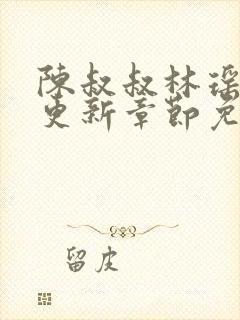 陳叔叔林瑶
更新章節免
留皮